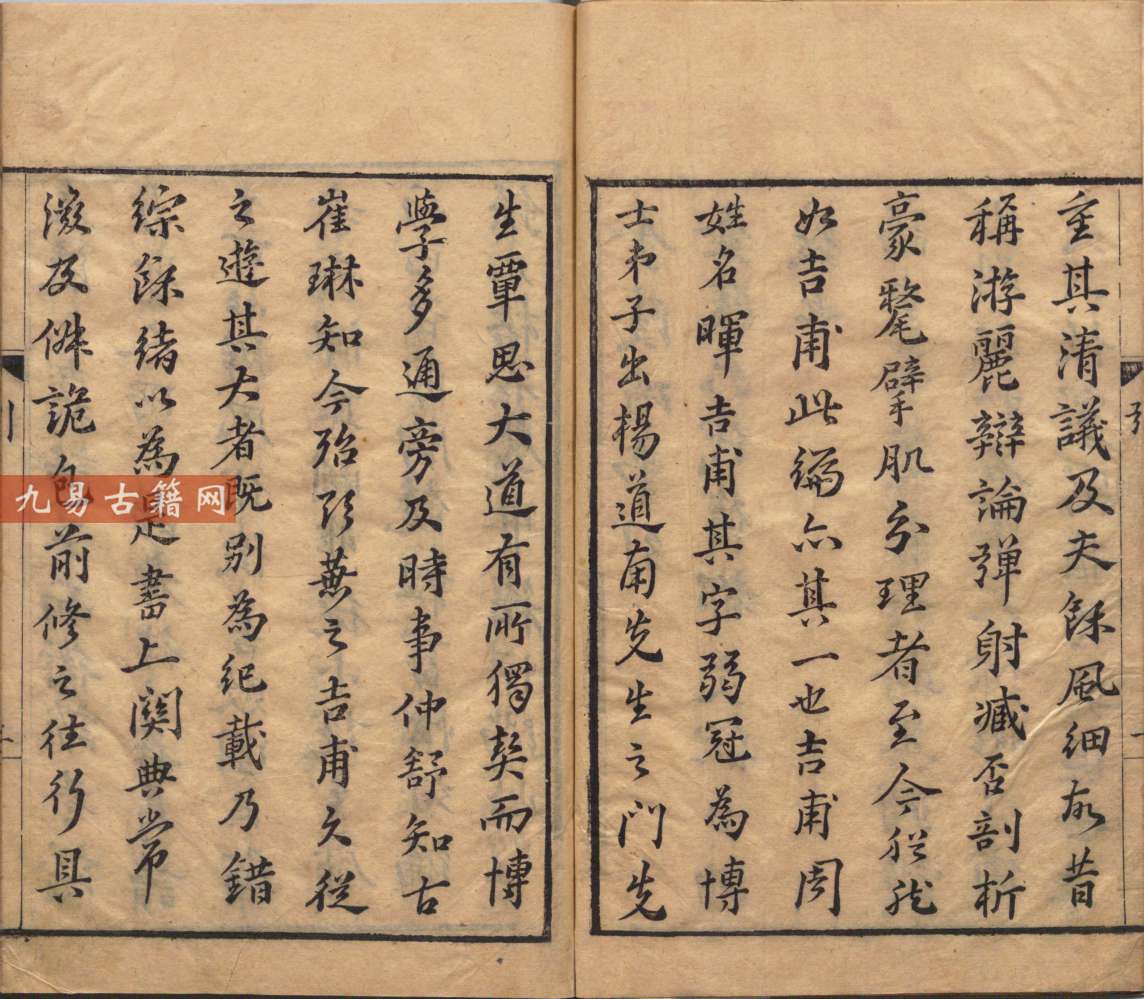 重其清議及夫餘風細故昔
稱游麗辯論彈射臧否剖析
豪氂擘肌分理者至今猶然
如吉甫此編亦其一也吉甫周
姓名暉吉甫其字弱冠為博
士弟子出楊道南先生之門先
生覃思大道有所獨契而博
學多通旁及時事仲舒知古
崔琳知今殆欲兼之吉甫久從
之遊其大者既别為紀載乃錯
綜餘緒以為是書上關典常
俶詭包前修之往行具
引
九易古籍网